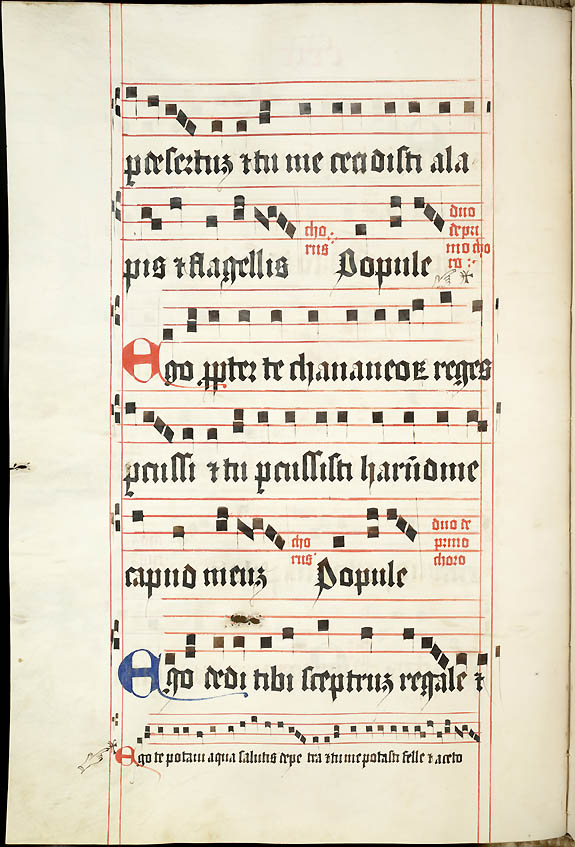 per desertuʒ ⁊ tu me cecidisti ala
pis ⁊ flagellis chorus Popule duo de primo choro
Ego ꝓpter te chananeoꝝ reges
ꝑcussi ⁊ tu ꝑcussisti harūdine
capud meuʒ chorus Popule duo de primo choro
Ego dedi tibi sceptruʒ regale ⁊
Ego te potavi aqua salutis de petra ⁊ tu me potasti felle ⁊ aceto